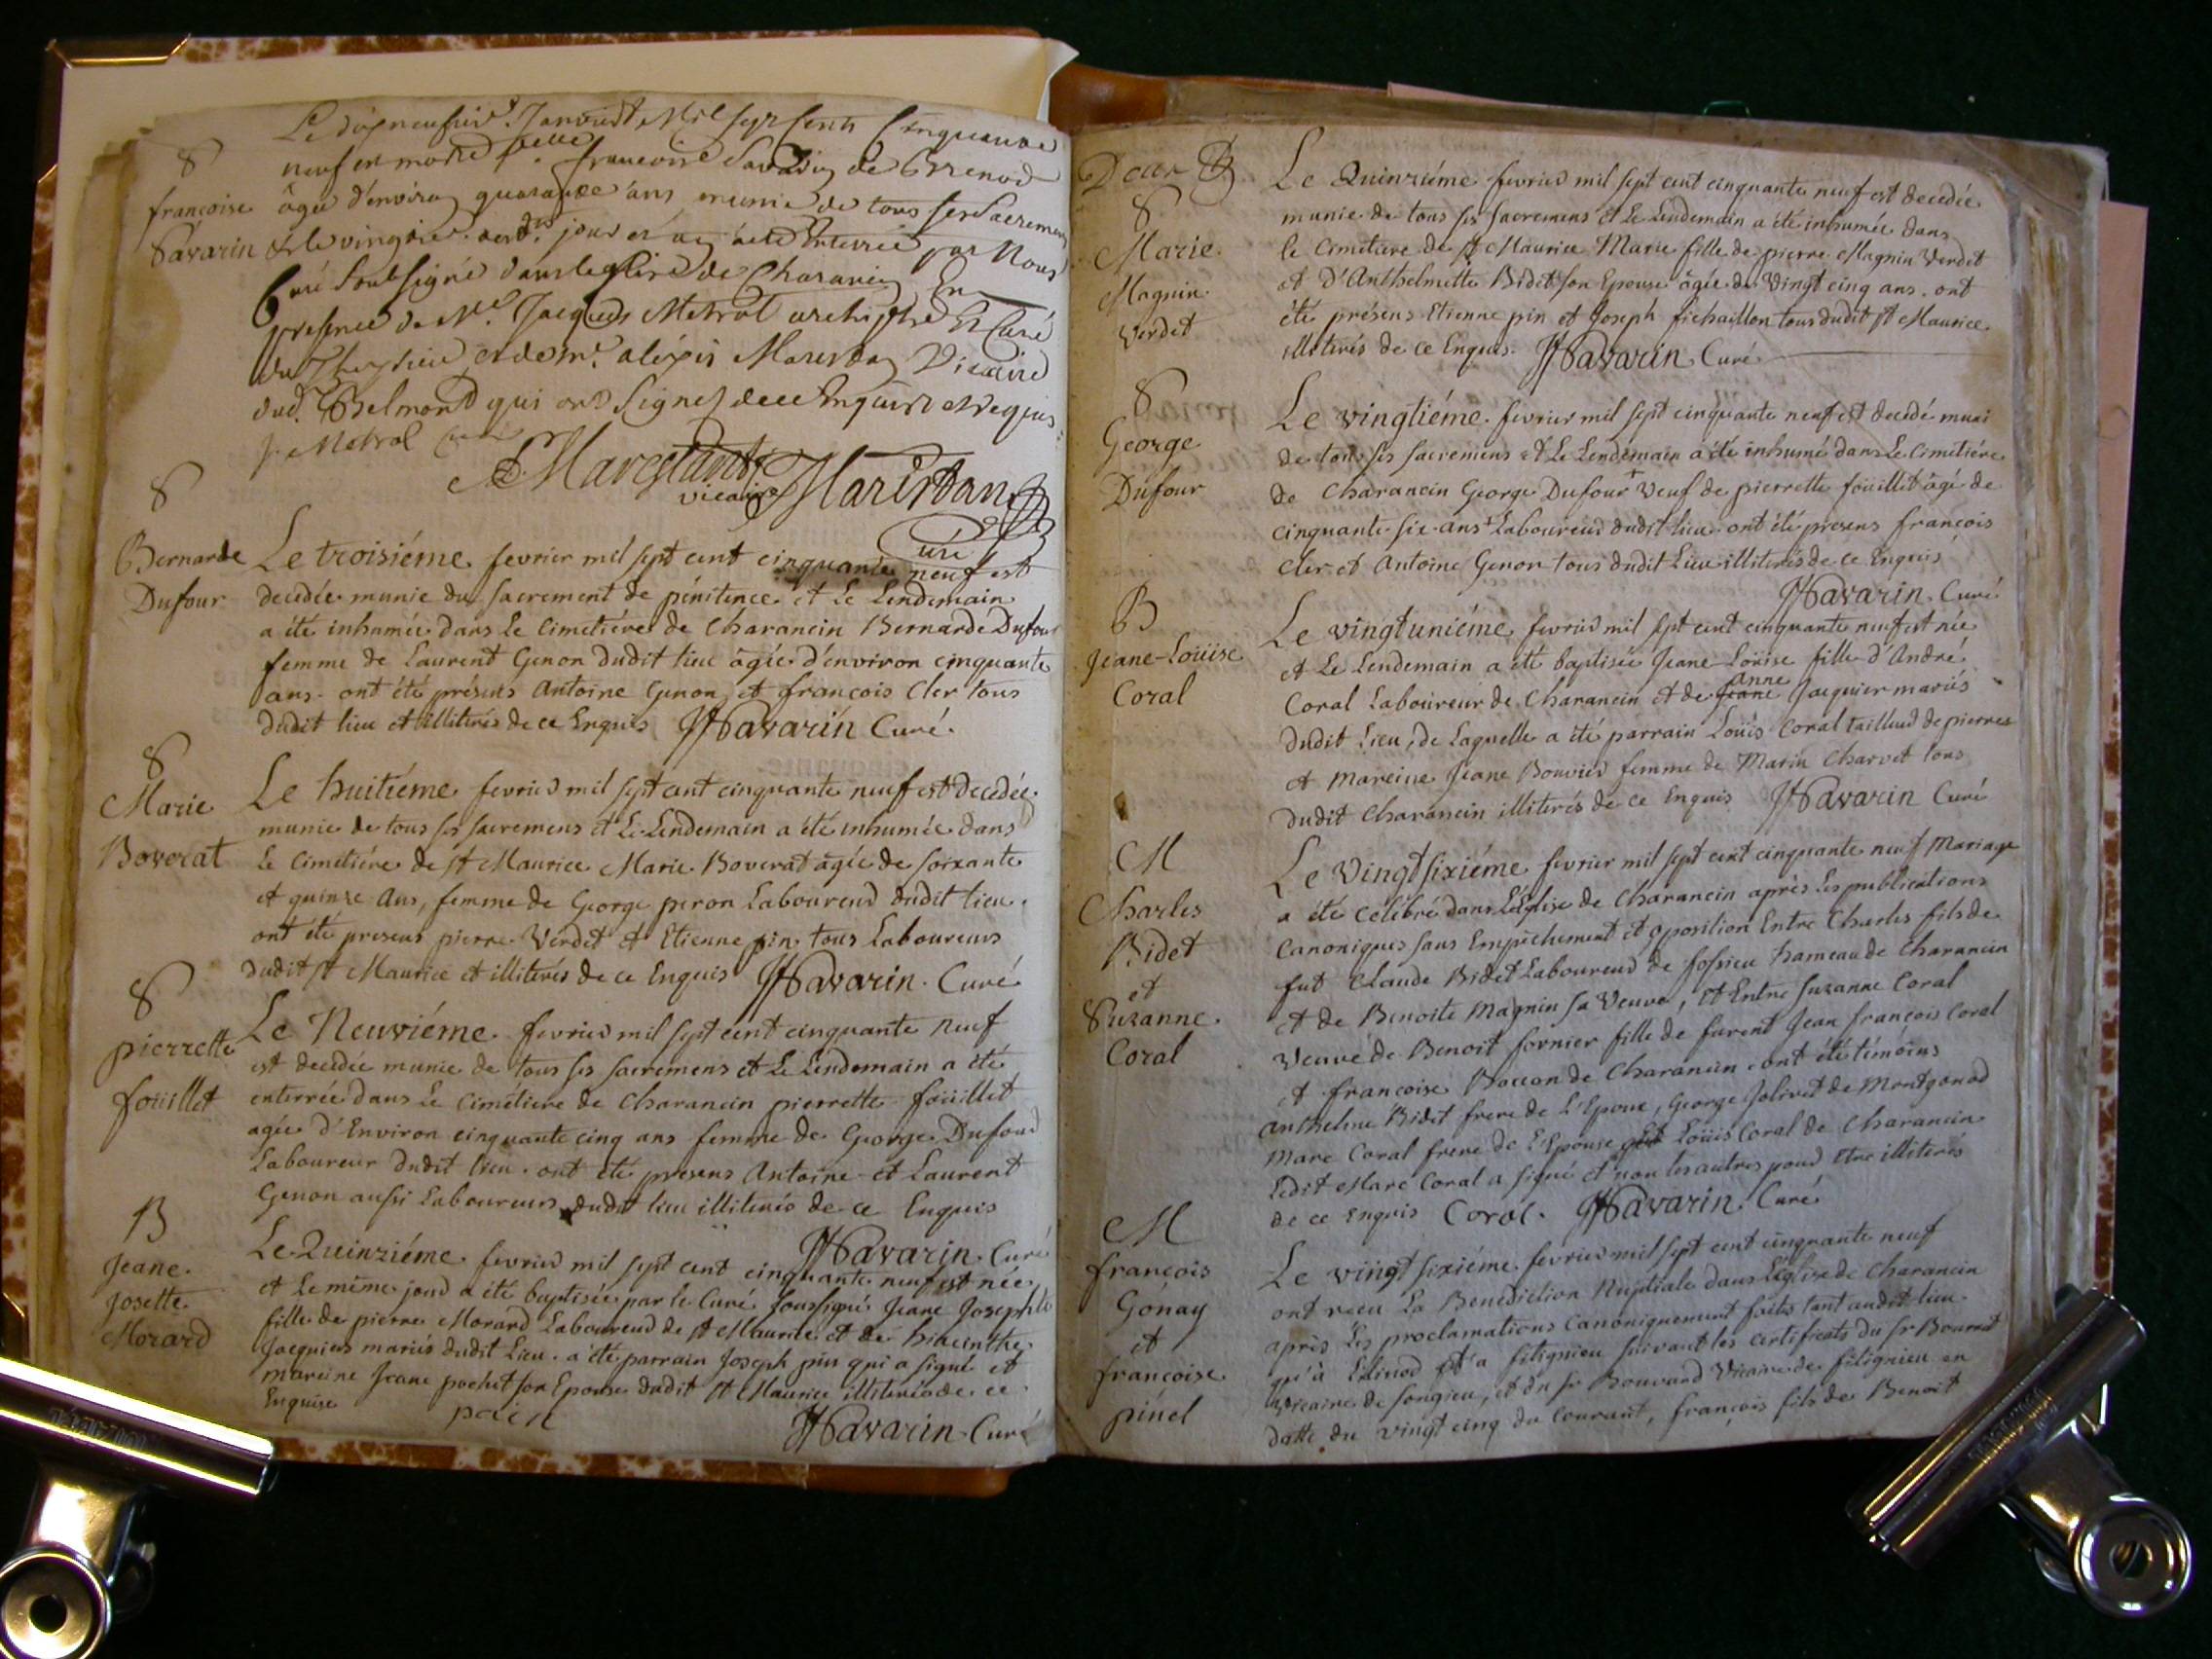 Le dixneufvie. Janvier Mil sept cents Cinquante
neuf en morte
françoise Savarin de Brenod
S
françoise
Savarin
âgée d'environ quarante ans munie de tous ses Sacremens
& le vingtie. desd. jour et an a été Enterrée par Nous
Curé Soubsigné dans leglise de Charancin En
presence de Mre. Jacques Metral archiptre Et Curé
du et de mr. alexis Marestan Vicaire
dud. Belmont qui ont Signes de ce Enquis et requis
J. Metral Curé
Marestan
vicaire Marestan
Curé
S
Bernarde
Dufour
Le troisiéme fevrier mil sept cent cinquante neuf est
decedée munie du sacrement de pénitence et Le Lendemain
a été inhumée dans Le Cimetiére de Charancin Bernarde Dufour
femme de Laurent Genon dudit lieu âgée d'environ cinquante
ans. ont été présens Antoine Genon et françois Cler tous
dudit lieu et illiterés de ce Enquis JHSavarin Curé.
S
Marie
Boverat
Le huitiéme fevrier mil sept cent cinquante neuf est decedée
munie de tous ses sacremens et Le Lendemain a été inhumée dans
Le Cimetiére de St Maurice Marie Boverat âgée de soixante
et quinze Ans, femme de George peron Laboureur dudit lieu.
ont été presens pierre Verdet et Etienne pin tous Laboureurs
dudit St Maurice et illiterés de ce Enquis JHSavarin. Curé
S
pierrette
foüillet
Le Neuviéme fevrier mil sept cent cinquante neuf
est decedée munie de tous ses sacremens et Le Lendemain a été
enterrée dans Le Cimétiere de Charancin pierrette foüillet
agée d'Environ cinquante cinq ans femme de George Dufour
Laboureur dudit lieu. ont été presens Antoine et Laurent
Genon aussi Laboureurs dudit lieu illiterés de ce Enquis
JHSavarin. Curé
B
Jeane.
Josette.
Morard
Le Quinziéme fevrier mil sept cent cinquante neuf est née
et Le même jour a été baptisée par le Curé soussigné Jeane Josephte
fille de pierre Morard Laboureur de St Maurice et de hiacinthe
Jacquier mariés dudit Lieu. a été parrain Joseph pin qui a signé et
mareine Jeane pochet son Epouse dudit St Maurice illiterée de ce
Enquise
JHSavarin Curé
Deux
S
Marie.
Magnin
Verdet
Le Quinziéme fevrier mil sept cent cinquante neuf est decedée
munie de tous ses sacremens et Le Lendemain a été inhumée dans
le Cimetiere de St Maurice Marie fille de pierre Magnin Verdet
et D'Anthelmette Bidet son Epouse âgée de Vingt cinq ans. ont
été présens Etienne pin et Joseph fichaillon tous dudit St Maurice.
illiterés de ce Enquis. JHSavarin Curé
S
George
Dufour
Le vingtiéme fevrier mil sept cinquante neuf est decedé muni
de tous ses sacremens et Le Lendemain a été inhumé dans Le Cimetiére
de Charancin George Dufour + Veuf de pierrette foüillet âgé de
cinquante-six-ans + Laboureur dudit lieu. ont été presens françois
Cler et Antoine Genon tous dudit Lieu illiterés de ce Enquis
JHSavarin. Curé
B
Jeane-Loüise
Coral
Le vingtuniéme fevrier mil sept cent cinquante neuf est née
et Le Lendemain a été baptisée Jeane-Loüise fille d'André
anne
Coral Laboureur de Charancin et de Jeane Jacquier mariés
dudit Lieu, de Laquelle a été parrain Loüis Coral tailleur de pierres
et mareine Jeane Bouvier femme de Marin Charvet tous
dudit Charancin illiterés de ce Enquis JHSavarin Curé
M
Charles
Bidet
et
Suzanne.
Coral
Le Vingtsixiéme fevrier mil sept cent cinquante neuf Mariage
a été célébré dans L'Eglise de Charancin après Les publications
Canoniques sans Empêchement et oposition Entre Charles fils de
fut Claude Bidet Laboureur de fossieu hameau de Charancin
et de Benoite Magnin sa Veuve, Et Entre Suzanne Coral
Veuve de Benoit fornier fille de furent Jean françois Coral
et françoise Bouvan de Charancin. ont été témoins
Anthelme Bidet frere de L'Epoux, George Jolivet de Montgonod
Marc Coral frere de L'Epouse Loüis Coral de Charancin
Ledit Marc Coral a signé et non les autres pour Etre illiterés
de ce Enquis Coral. JHSavarin. Curé
M
françois
Gónay
et
françoise
pinel
Le vingt sixiéme fevrier mil sept cent cinquante neuf
ont reçu La Benediction Nuptiale dans L'Eglise de Charancin
après Les proclamations Canoniquement faites tant audit lieu
qu'à et a fitignieu suivant les certificats du Sr Bonnet
Vicaire de Songieu, et du Sr Bouvard Vicaire de fitignieu en
datte du vingt cinq du Courant, françois fils de Benoit